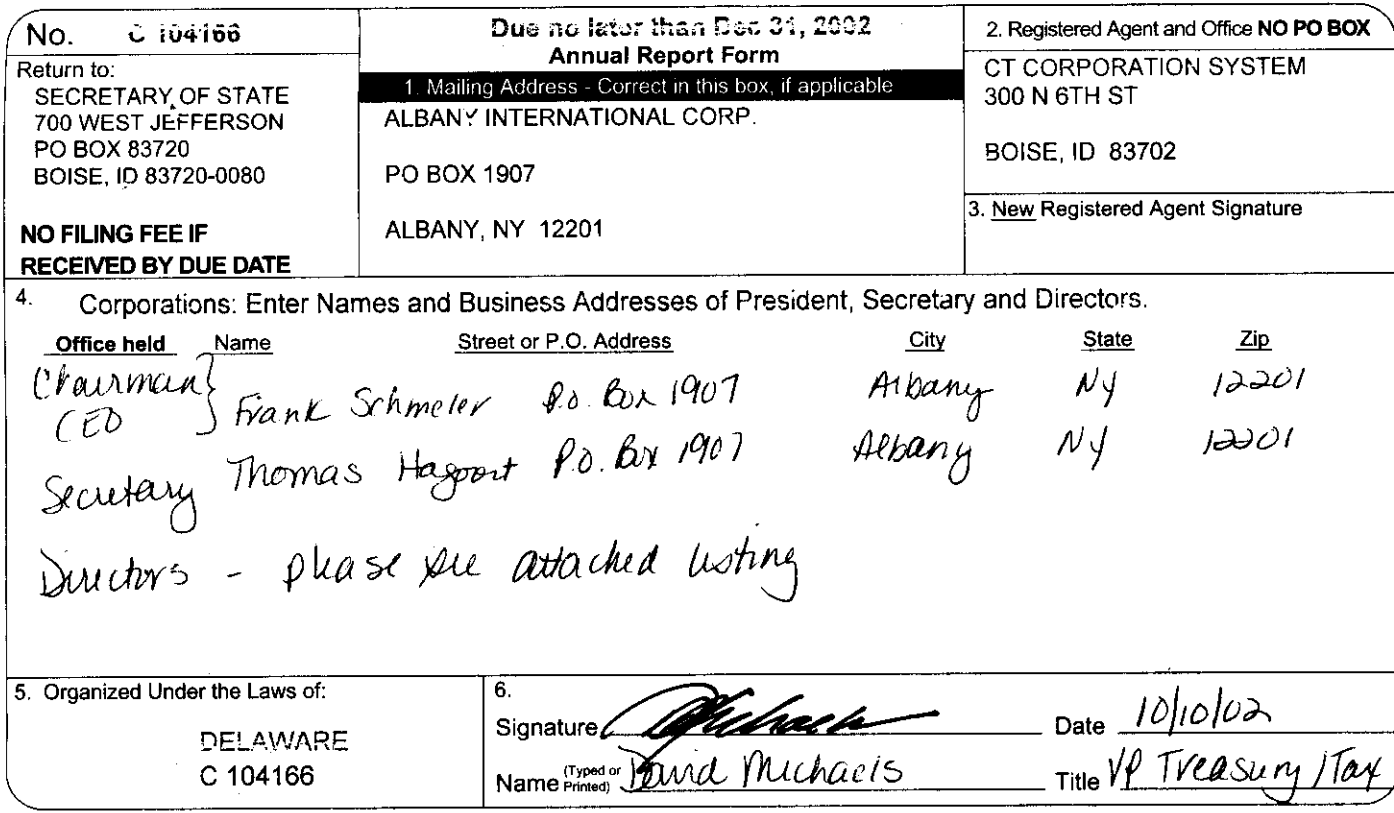 No. C 104166
Return to:
SECRETARY OF STATE
700 WEST JEFFERSON
PO BOX 83720
BOISE, ID 83720-0080
NO FILING FEE IF
RECEIVED BY DUE DATE
Due no later than Dec 31, 2002
Annual Report Form
1. Mailing Address - Correct in this box, if applicable
ALBANY INTERNATIONAL CORP.
PO BOX 1907
ALBANY, NY 12201
2. Registered Agent and Office NO PO BOX
CT CORPORATION SYSTEM
300 N 6TH ST
BOISE, ID 83702
3. New Registered Agent Signature
4. Corporations: Enter Names and Business Addresses of President, Secretary and Directors.
Office held Name Street or P.O. Address City State Zip
Chairman
CEO } Frank Schmeler P.O. Box 1907 Albany NY 12201
Secretary Thomas Hagoort P.O. Box 1907 Albany NY 12201
Directors - please see attached listing
5. Organized Under the Laws of:
DELAWARE
C 104166
6.
Signature DMichaels Date 10/10/02
Name (Typed or Printed) David Michaels Title VP Treasury / Tax